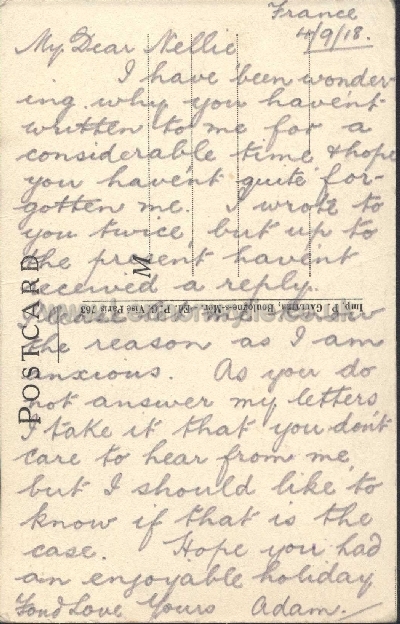 France
4/9/18.
My Dear Nellie
I have been wonder-
ing why you havent
written to me for a
considerable time & hope
you havent quite for-
gotten me. I wrote to
you twice, but up to
the present havent
received a reply.
the reason as I am
anxious. As you do
not answer my letters
I take it that you don't
care to hear from me,
but I should like to
know if that is the
case. Hope you had
an enjoyable holiday
Fond Love Yours Adam.
POSTCARD
M
Imp. P. Boulogne-s-Mer. - Ed. P. G. Visé Paris 763